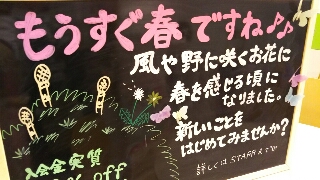 もうすぐ春ですね♪♪
風や野に咲くお花に
春を感じる頃に
なりました。
新しいことを
はじめてみませんか？
詳しくはSTAFFまで!!
入会金実質
% off